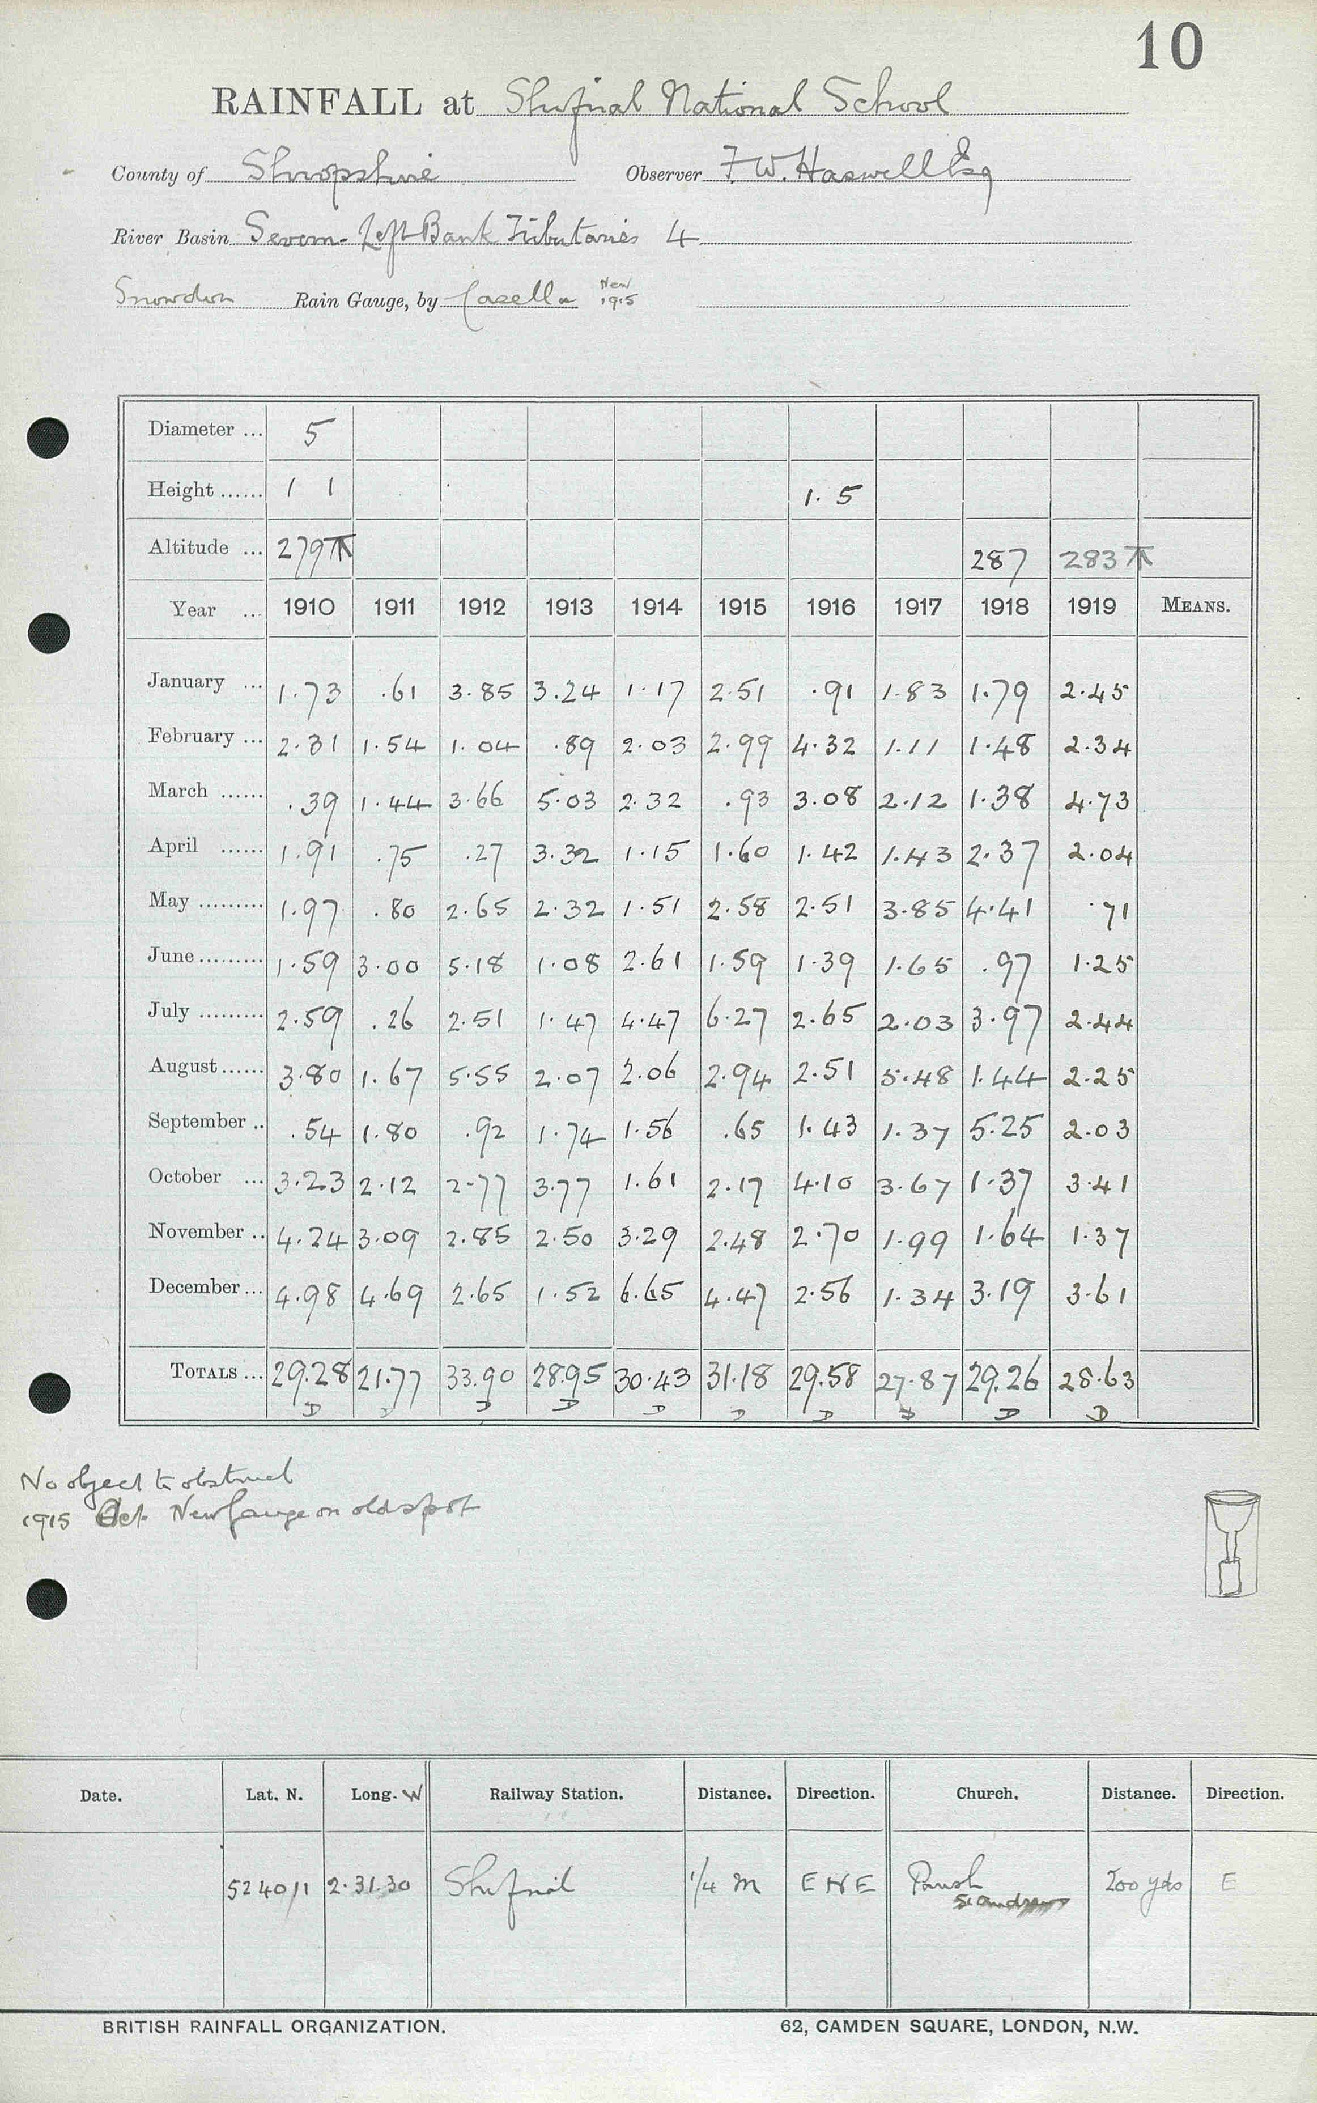 10
RAINFALL at Shifnal National School
County of Shropshire Observer F. W. Haswell Esq
River Basin Severn - Left Bank Tributaries 4
Snowdon Rain Gauge, by Casella New 1915
Diameter ... 5
Height ...... 1 1 1.5
Altitude ... 279 287 283
Year ... 1910 1911 1912 1913 1914 1915 1916 1917 1918 1919 MEANS.
January ... 1.73 .61 3.85 3.24 1.17 2.51 .91 1.83 1.79 2.45
February ... 2.31 1.54 1.04 .89 2.03 2.99 4.32 1.11 1.48 2.34
March ...... .39 1.44 3.66 5.03 2.32 .93 3.08 2.12 1.38 4.73
April ...... 1.91 .75 .27 3.32 1.15 1.60 1.42 1.43 2.37 2.04
May ......... 1.97 .80 2.65 2.32 1.51 2.58 2.51 3.85 4.41 .71
June ......... 1.59 3.00 5.18 1.08 2.61 1.59 1.39 1.65 .97 1.25
July ......... 2.59 .26 2.51 1.47 4.47 6.27 2.65 2.03 3.97 2.44
August ...... 3.80 1.67 5.55 2.07 2.06 2.94 2.51 5.48 1.44 2.25
September .. .54 1.80 .92 1.74 1.56 .65 1.43 1.37 5.25 2.03
October ... 3.23 2.12 2.77 3.77 1.61 2.17 4.10 3.67 1.37 3.41
November .. 4.24 3.09 2.85 2.50 3.29 2.48 2.70 1.99 1.64 1.37
December ... 4.98 4.69 2.65 1.52 6.65 4.47 2.56 1.34 3.19 3.61
TOTALS ... 29.28 21.77 33.90 28.95 30.43 31.18 29.58 27.87 29.26 28.63
D D D D D D D D D D
No object to obstruct
1915 Oct. New Gauge on old spot
Date. Lat. N. Long. W Railway Station. Distance. Direction. Church. Distance. Direction.
52 40 11 2.31.30 Shifnal 1/4 m ENE Parish 200 yds E
BRITISH RAINFALL ORGANIZATION. 62, CAMDEN SQUARE, LONDON, N.W.